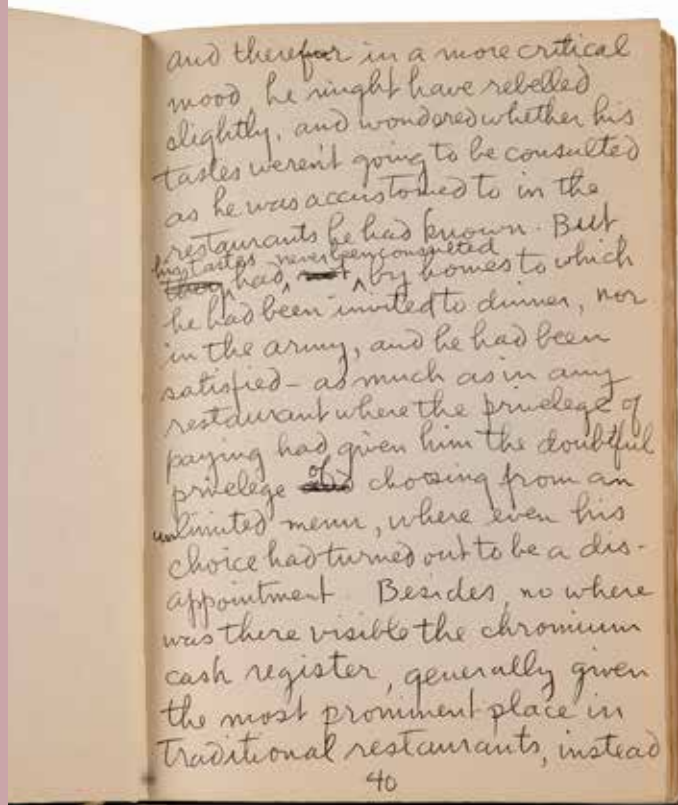 and therefor in a more critical
mood, he might have rebelled
slightly, and wondered whether his
tastes weren't going to be consulted
as he was accustomed to in the
restaurants he had known. But,
his tastes never been consulted
had, by homes to which
he had been invited to dinner, nor
in the army, and he had been
satisfied - as much as in any
restaurant where the privelege of
paying had given him the doubtful
of
privelege and choosing from an
unlimited menu, where even his
choice had turned out to be a dis-
appointment. Besides, no where
was there visible the chromium
cash register, generally given
the most prominent place in
traditional restaurants, instead
40